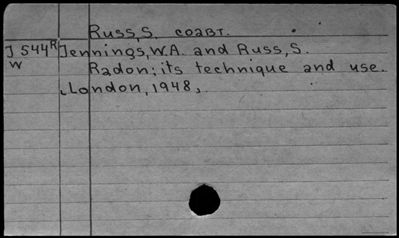 Russ, S. соавт.
J 544R Jennings, W.A. and Russ, S.
W Radon; its technique and use.
London, 1948.